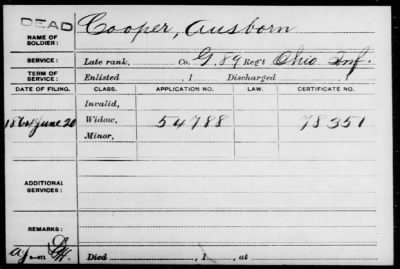 DEAD
NAME OF SOLDIER: Cooper, Ausborn
SERVICE: Late rank, Co. G, 89 Reg't Ohio Inf.
TERM OF SERVICE: Enlisted , 1 Discharged , 1
DATE OF FILING. CLASS. APPLICATION NO. LAW. CERTIFICATE NO.
Invalid,
1864 June 20 Widow, 54788 78351
Minor,
ADDITIONAL SERVICES:
REMARKS:
Died , 1 , at